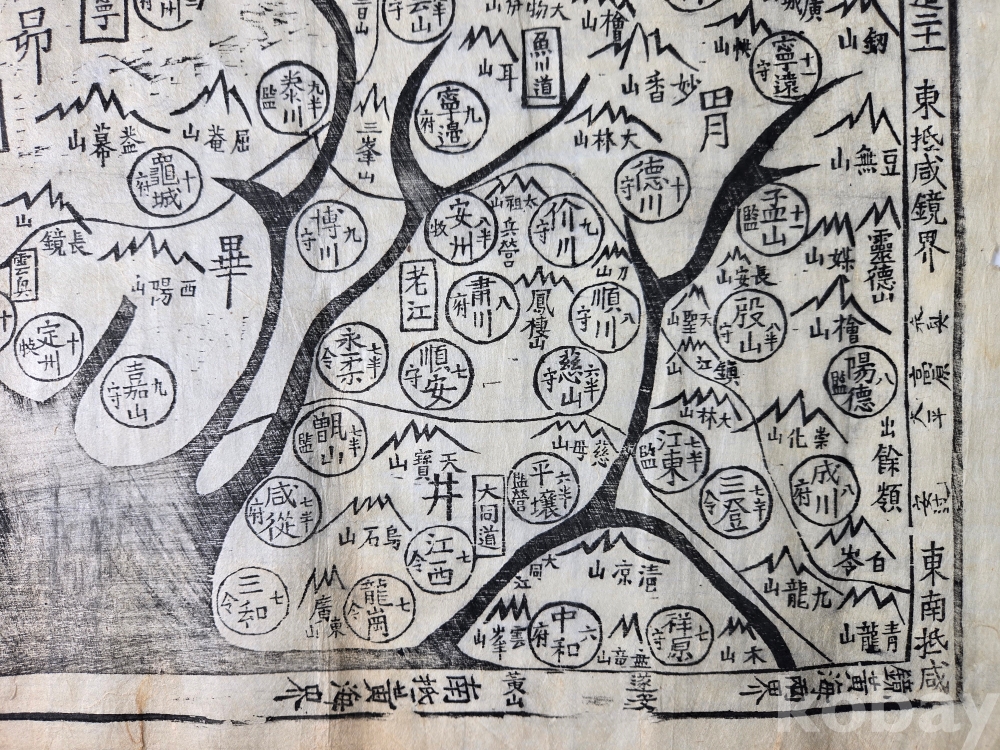 昴
寧遠
十一
守
泰川
九半
監
魚川道
寧邊
九
府
妙香山
檜山
釼山
胃
蓋幕山
屈菴山
三峯山
大林山
豆無山
龜城
十
府
德川
十
守
孟山
十一
監
博川
九
守
安州
八半
牧
太祖山
兵營
价川
九
守
長鏡山
西陽山
畢
老江
肅川
八
府
鳳棲山
刀山
順川
八
守
長安山
天聖山
殷山
八半
守
媒山
靈德山
檜山
定州
十
牧
嘉山
九
守
永柔
七半
令
順安
七
守
慈山
六半
守
鎮江山
陽德
八
監
大林山
崇化山
出餘嶺
甑山
七半
監
天寶山
井
慈母山
江東
七半
監
成川
八
府
三登
七半
令
平壤
六半
監營
大同道
咸從
七半
府
烏石山
江西
七
令
清凉山
大同江
九龍山
白岺
三和
七
令
東廣山
龍岡
七
令
雲峯山
中和
六
府
祥原
七
守
木山
青龍山
東抵咸鏡界
東南抵咸
鏡黃海兩界
遂安
黃山
南抵黃海界
kobay